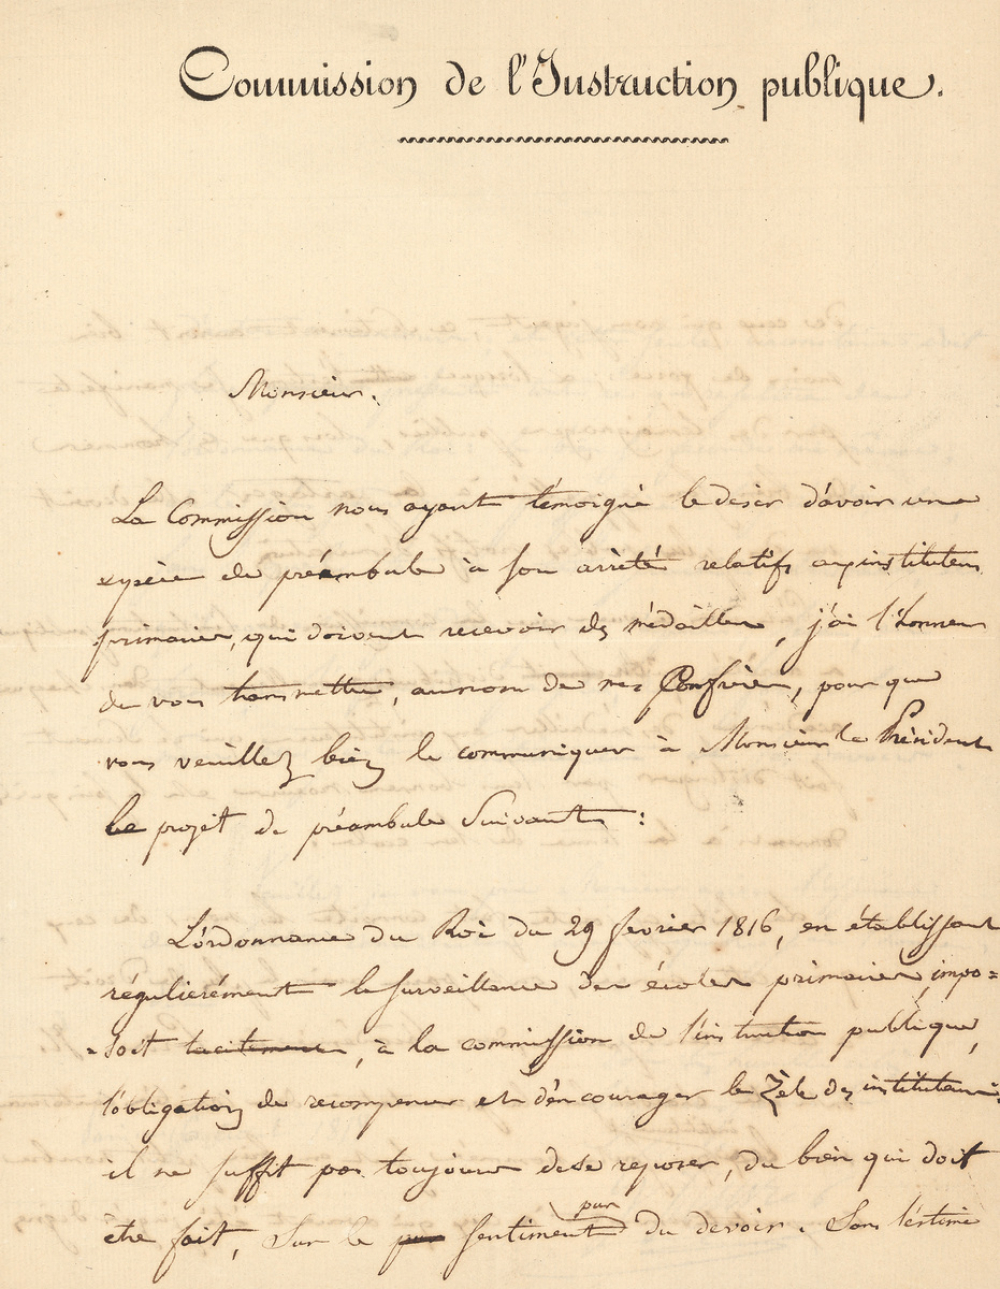 Commission de l'Instruction publique.
Monsieur.
La Commission nous ayant témoigné le desir d'avoir une
espèce de préambule à son arrêté relatif aux instituteurs
primaires, qui doivent recevoir des médailles, j'ai l'honneur
de vous transmettre, au nom de mes Confrères, pour que
vous veuillez bien le communiquer à Monsieur le Président
le projet de préambule suivant :
L'ordonnance du Roi du 29 fevrier 1816, en établissant
régulièrement la surveillance des écoles primaires, impo=
=soit tacitement, à la commission de l'instruction publique,
l'obligation de recompenser et d'encourager le zèle des instituteurs:
il ne suffit pas toujours de se reposer, du bien qui doit
être fait, sur le pur sentiment du devoir. Sans l'estime